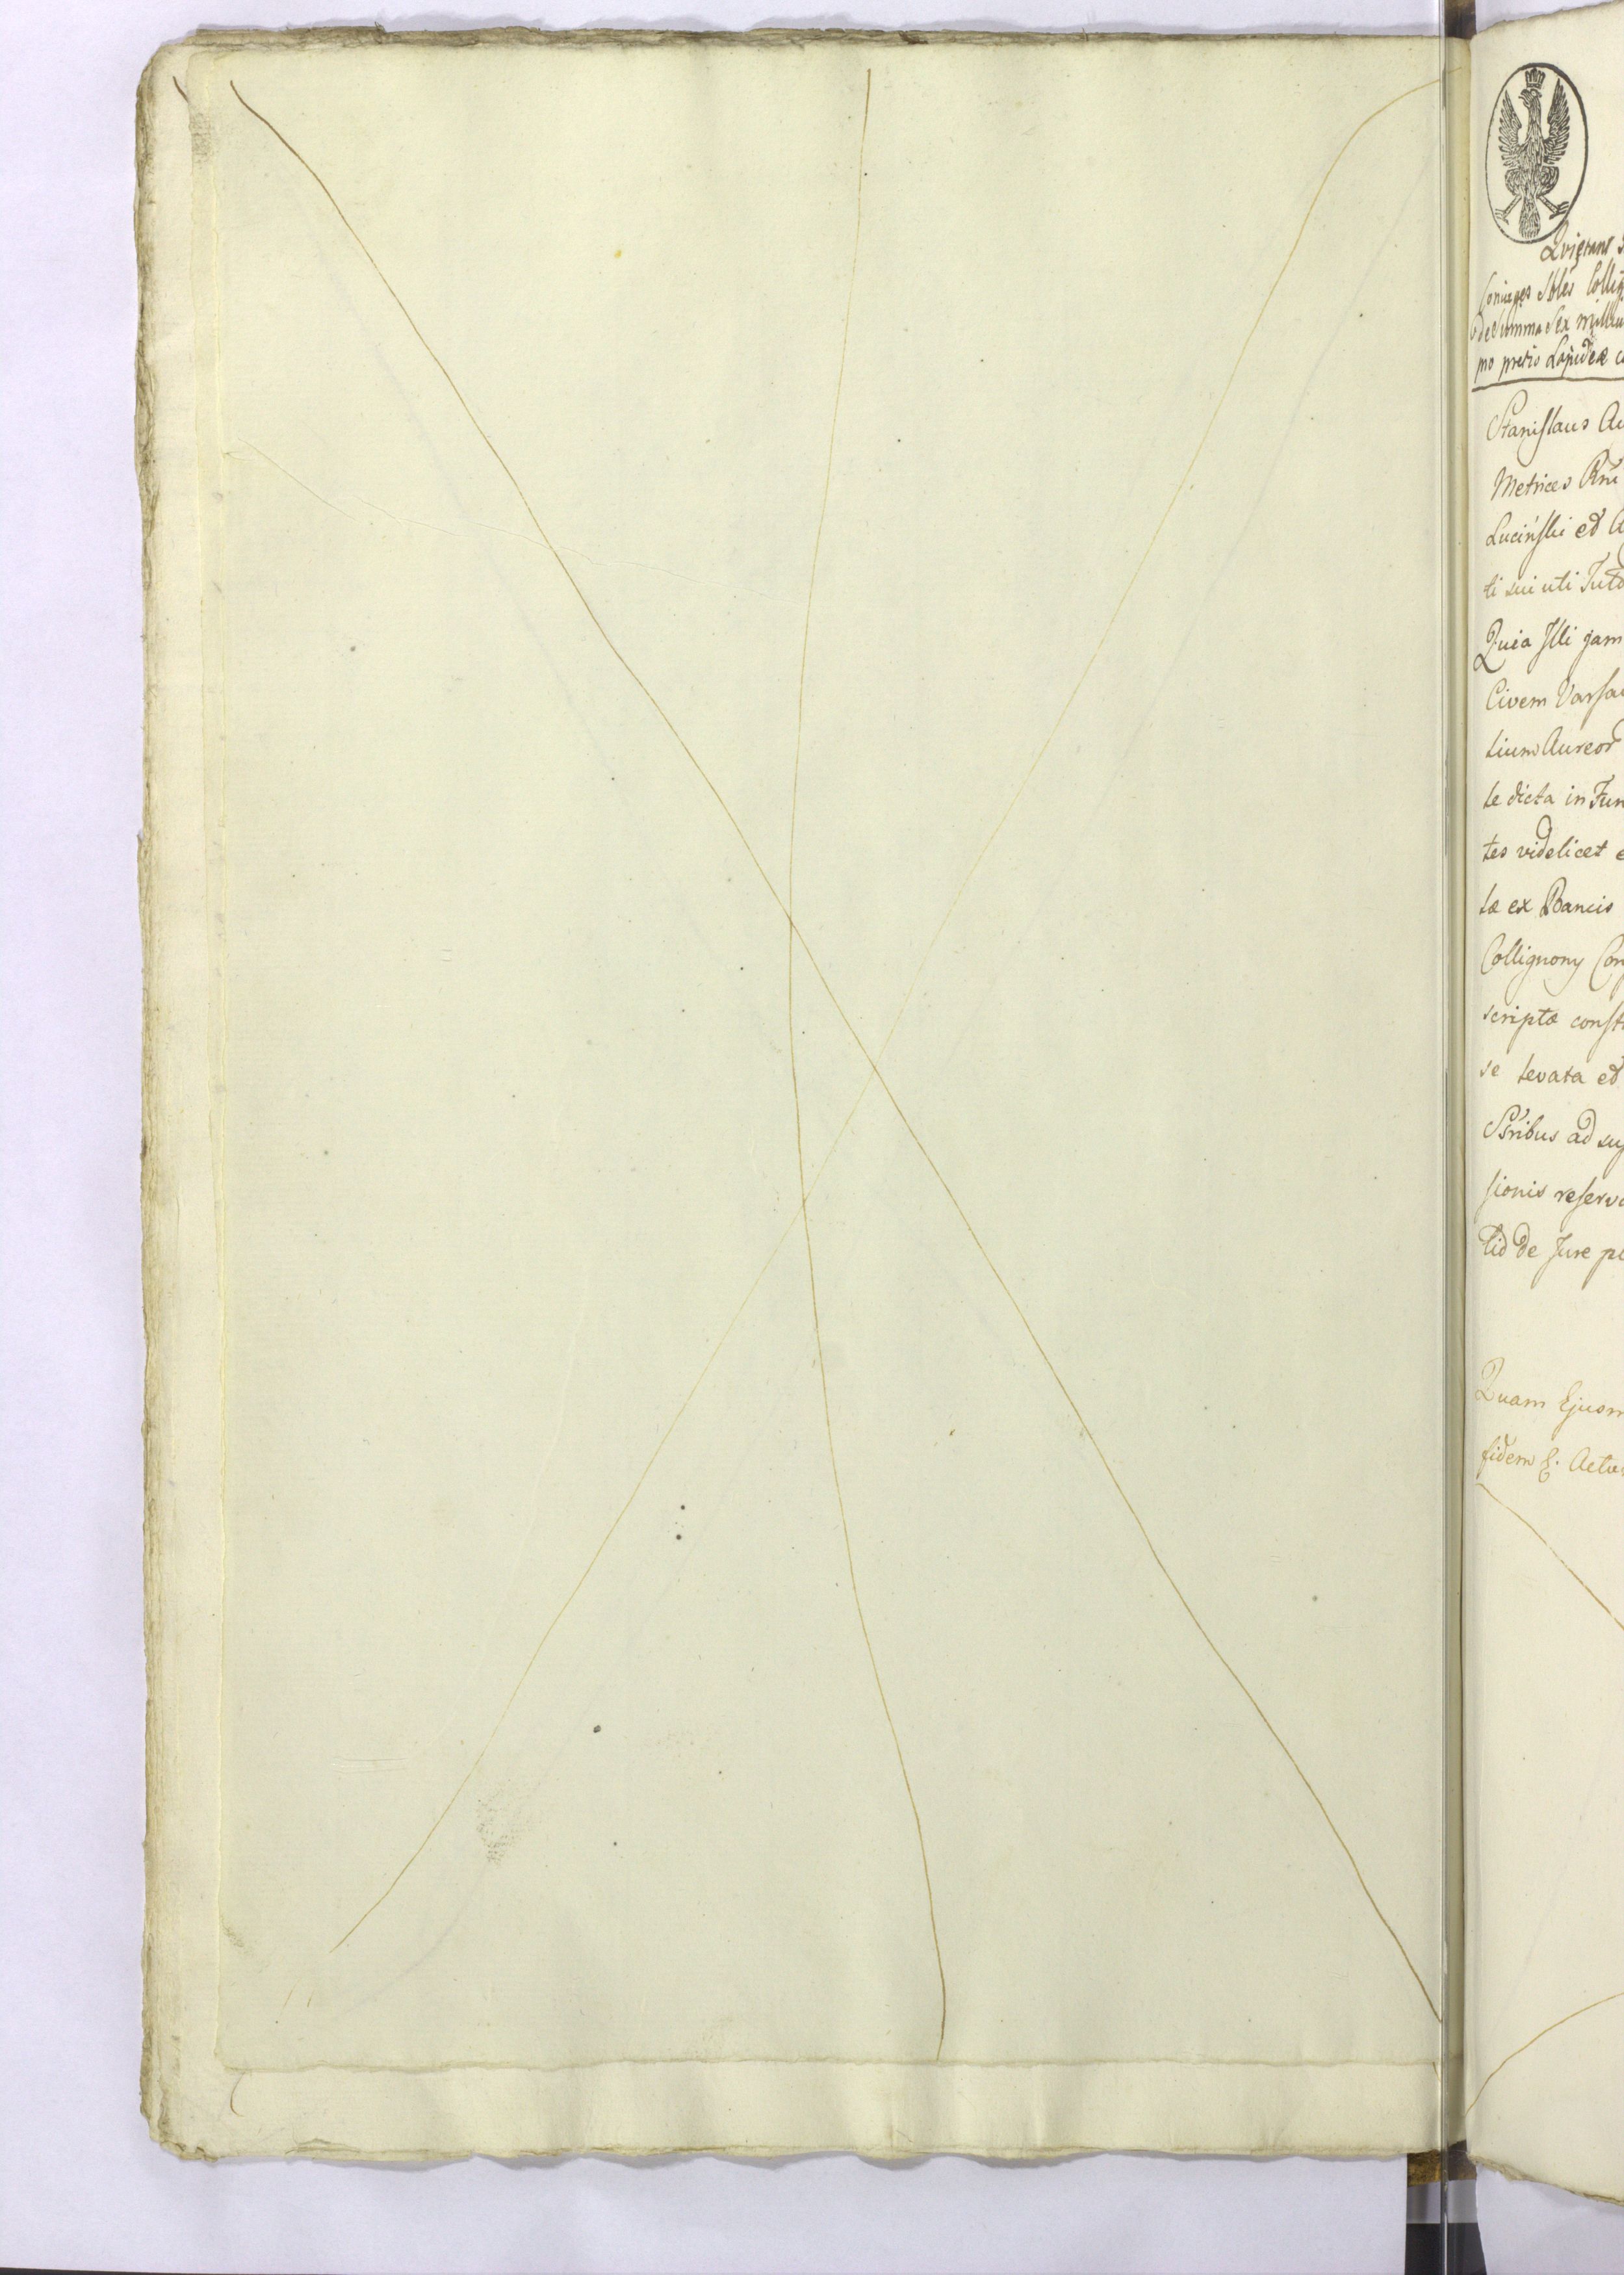 Quietant
Coniuges
de Summa Sex milliu
mo pretio Lapideæ
Stanislaus Au
Metrices Rni
Luciński et A
ti sui uti Tuto
Quia Illi jam
Civem Varsa
lium Aureor
te dicta in Fun
tes videlicet e
tæ ex Bancis
Collignony Con
scriptæ consti
se levata et
ad sup
sionis reserva
tid de Jure p
Quam Ejusm
fidem Actu